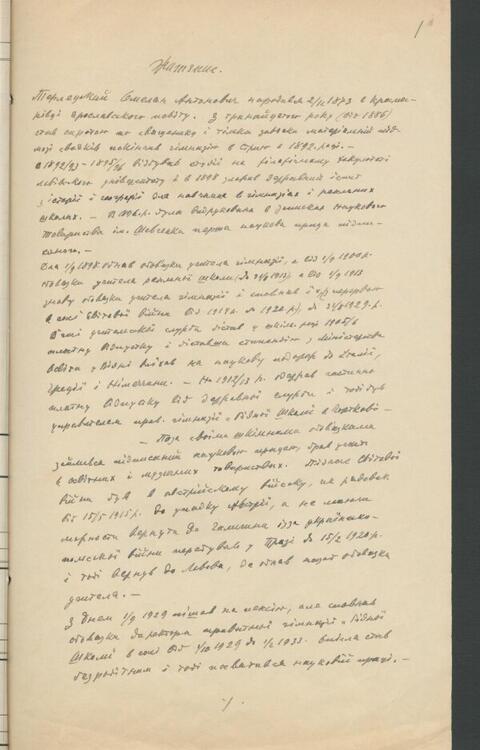 1
Життєпис.
Терлецький Омелян Антонович народився 2/II 1873 в Крама-
рівці ярославського повіту. З тринайцятого року (від 1886)
став сиротою по священику і тілько завдяки матеріальній підмо-
зі свояків покінчив гімназію в Стрию в 1892 році. —
В 1892/93 – 1895/96 відбував студії на філософічному факультеті
львівського університету й в 1898 зложив державний іспит
з історії і географії для навчання в гімназіях і реальних
школах. — В була видрукована в Записках Наукового
Товариства ім. Шевченка перша наукова праця підпи-
саного. —
Дня 1/9 1898 обняв обовязки учителя гімназії, а від 1/9 1900 р.
обовязки учителя реальної школи (до 31/8 1913), а від 1/9 1913
знову обовязки учителя гімназії і сповняв їх з перервою
в часі Світової війни від 1915 р. до 1920 р., до 31/8 1929 р.
В часі учительської служби дістав у шкільнім році 1905/6
платну відпустку і діставши стипендію з Міністерства
Освіти у Відні виїхав на наукову подорож до Італії,
Греції і Німеччини. — На 1912/13 р. одержав частинно
платну відпустку від державної служби і тоді був
управителем прав. гімназії „Рідної Школи" в Городенці —
— Поза своїми шкільними обовязками
займався підписаний науковою працею, брав участь
в освітніх і музичних товариствах. Підчас Світової
війни був в австрійському війську, як рядовик
від 15/5 1915 р. до упадку Австрії, а не маючи
можности вернути до Галичини із-за українсько-
польської війни перебував у Празі до 15/2 1920 р.
і тоді вернув до Львова, де обняв назад обовязки
учителя. —
З днем 1/9 1929 пішов на пенсію, але сповняв
обовязки директора приватної гімназії „Рідної
Школи" в часі від 1929 до 1/2 1933. Вкінці став
безробітним і тоді посвятився науковій праці. —